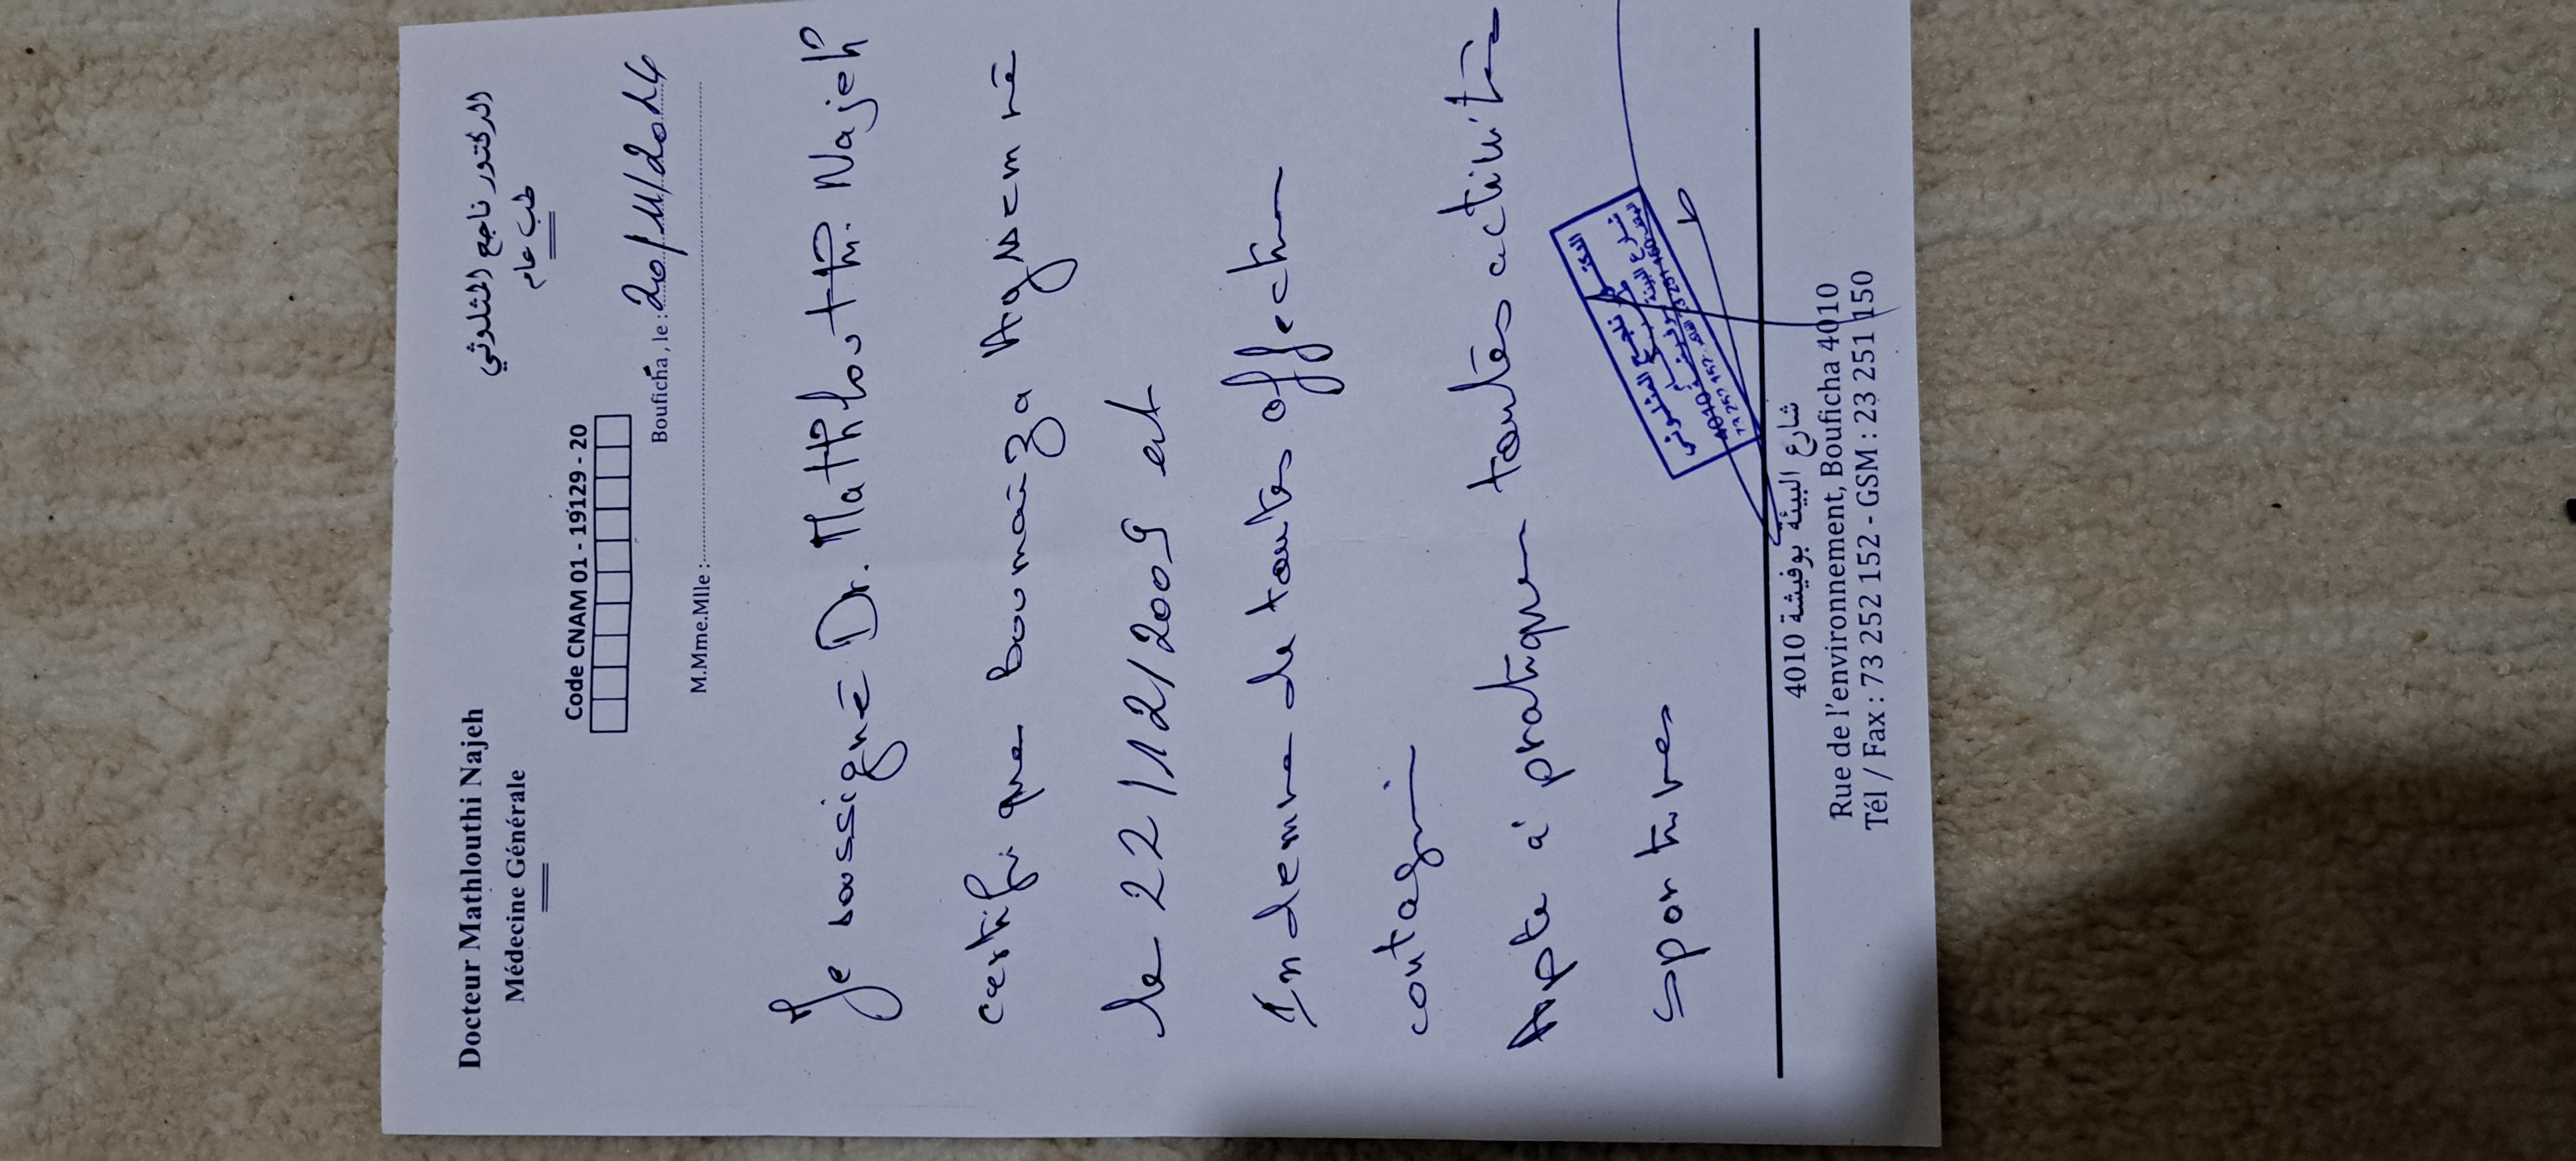 Docteur Mathlouthi Najeh
Médecine Générale
الدكتور ناجع المثلوثي
طب عام
Code CNAM 01 - 19129 - 20
Bouficha, le : 20/11/2024
M.Mme.Mlle :
Je soussigné Dr. Mathlouthi. Najeh
certifi que boumaiza né
le 22/12/2009 est
Indemne de toutes affection
contagin
Apte à pratiquer toutes activités
sportives
شارع البيئة بوفيشة 4010
Rue de l'environnement, Bouficha 4010
Tél / Fax : 73 252 152 - GSM : 23 251 150